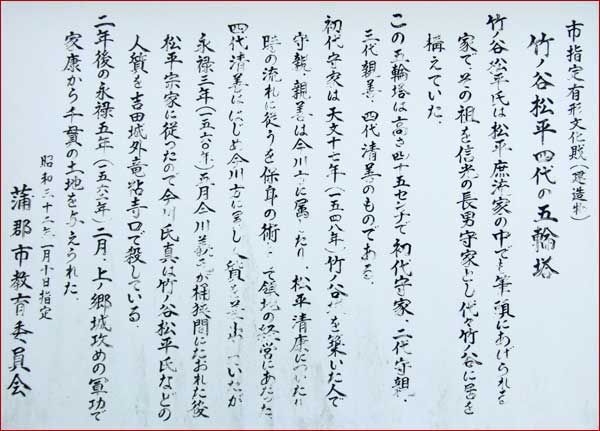 市指定有形文化財(建造物)
竹ノ谷松平四代の五輪塔
竹ノ谷松平氏は松平庶流家の中でも筆頭にあげられる
家で、その祖を信光の長男守家とし代々竹ノ谷に居を
構えていた。
この五輪塔は高さ四十五センチで初代守家、二代守親、
三代親善、四代清善のものである。
初代守家は天文十七年(一五四八年)竹ノ谷 を築いた人で
守親、親善は今川方に属したり、松平清康についたり
時の流れに従うを保身の術として領地の経営にあたった。
四代清善にはじめ今川方に属し人質を 出していたが
永禄三年(一五六〇年)五月今川義元が桶狭間にたおれた後
松平宗家に従ったので今川氏真は竹ノ谷松平氏などの
人質を吉田城外竜拈寺口で殺している
二年後の永禄五年(一五六二年)二月、上ノ郷城攻めの軍功で
家康から千貫の土地を与えられた。
昭和三十二年一月十日指定
蒲郡市教育委員会